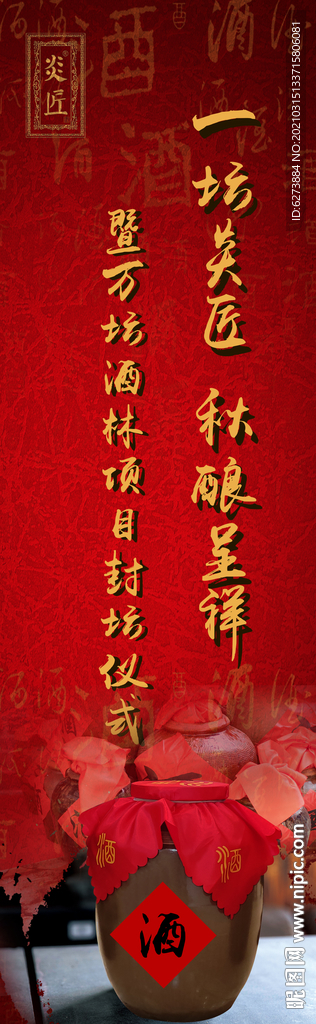 炎匠
一坛炎匠 秋酿呈祥
暨万坛酒林项目封坛仪式
酒
酒
酒
ID:6273884 NO:20210315133715806081
昵图网 www.nipic.com